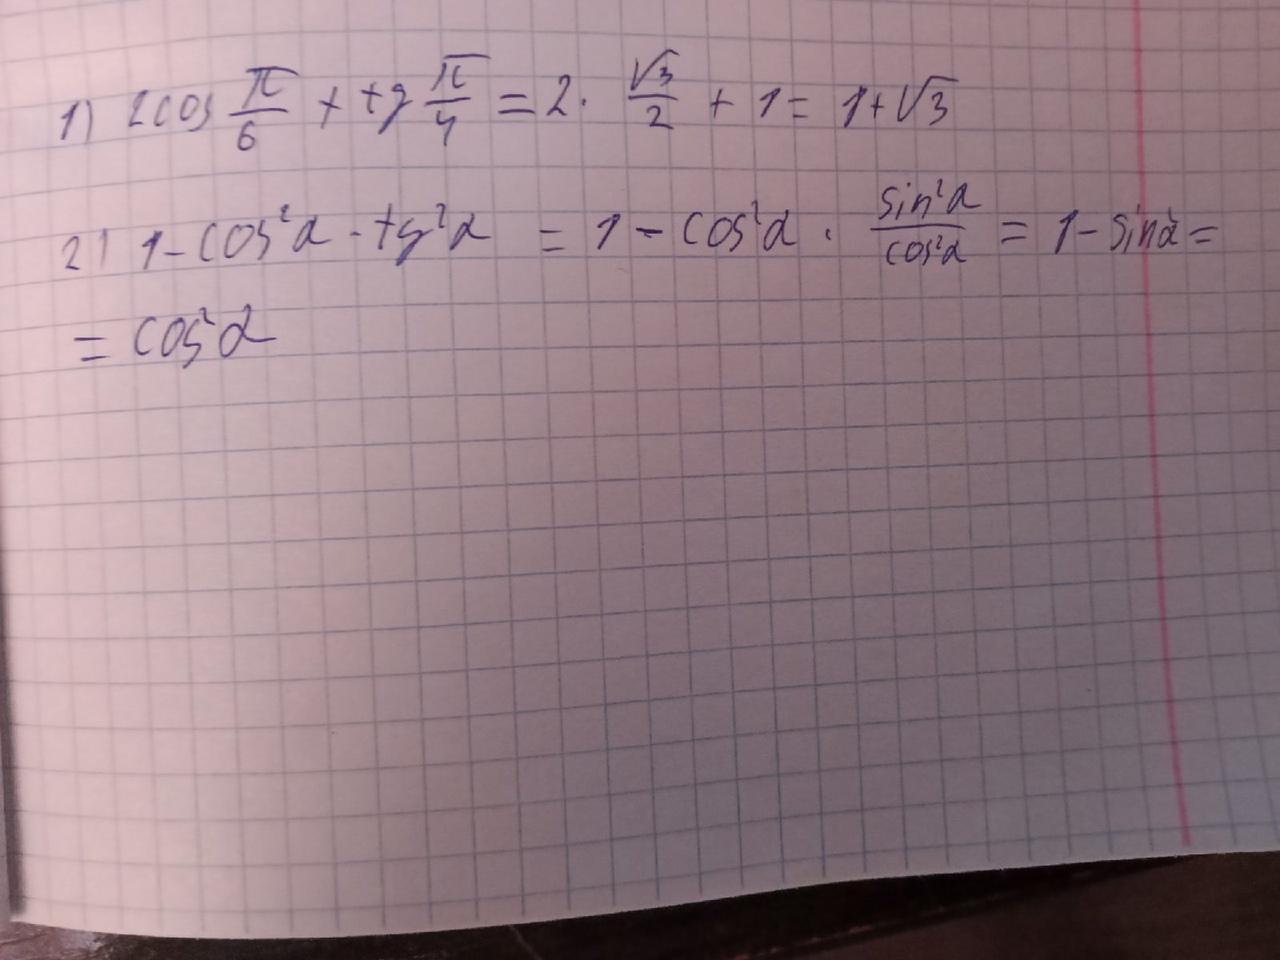 1) 2cos π/6 + tg π/4 = 2 · √3/2 + 1 = 1 + √3
2) 1 - cos²α · tg²α = 1 - cos²α · sin²α/cos²α = 1 - sin²α =
= cos²α